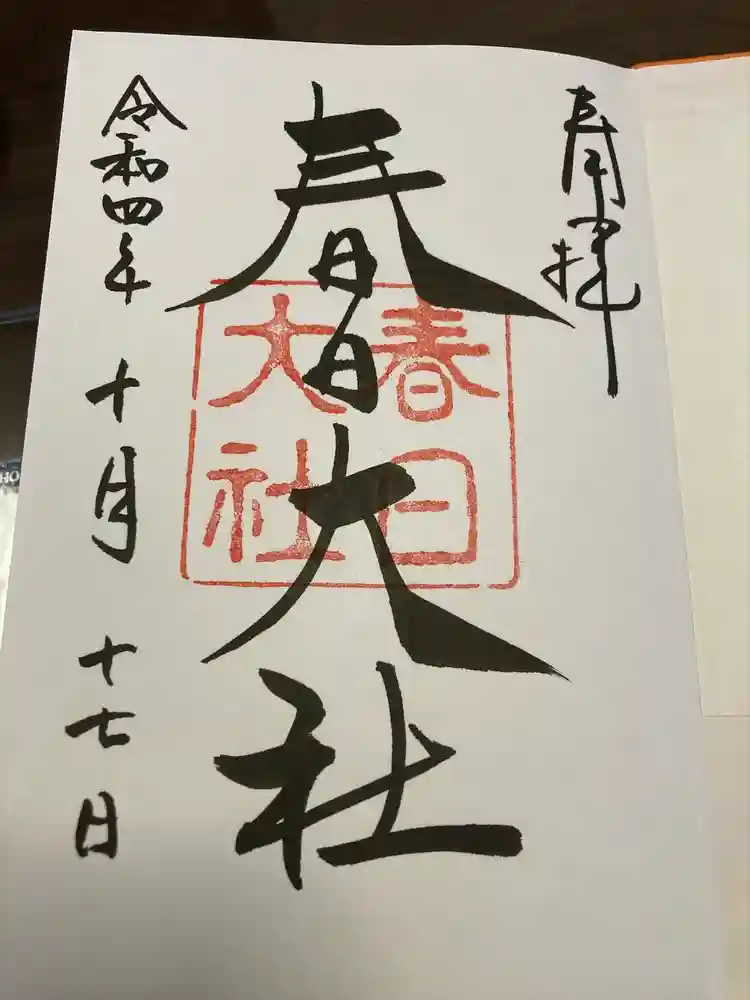 奉拝
春日大社
春日
大社
令和四年十月十七日